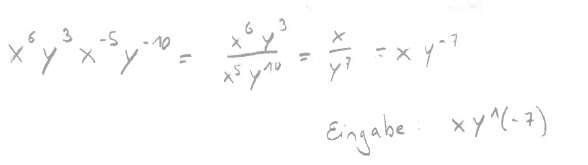 x^6 y^3 x^-5 y^-10 = x^6 y^3 / x^5 y^10 = x / y^7 = x y^-7
Eingabe: x y^(-7)